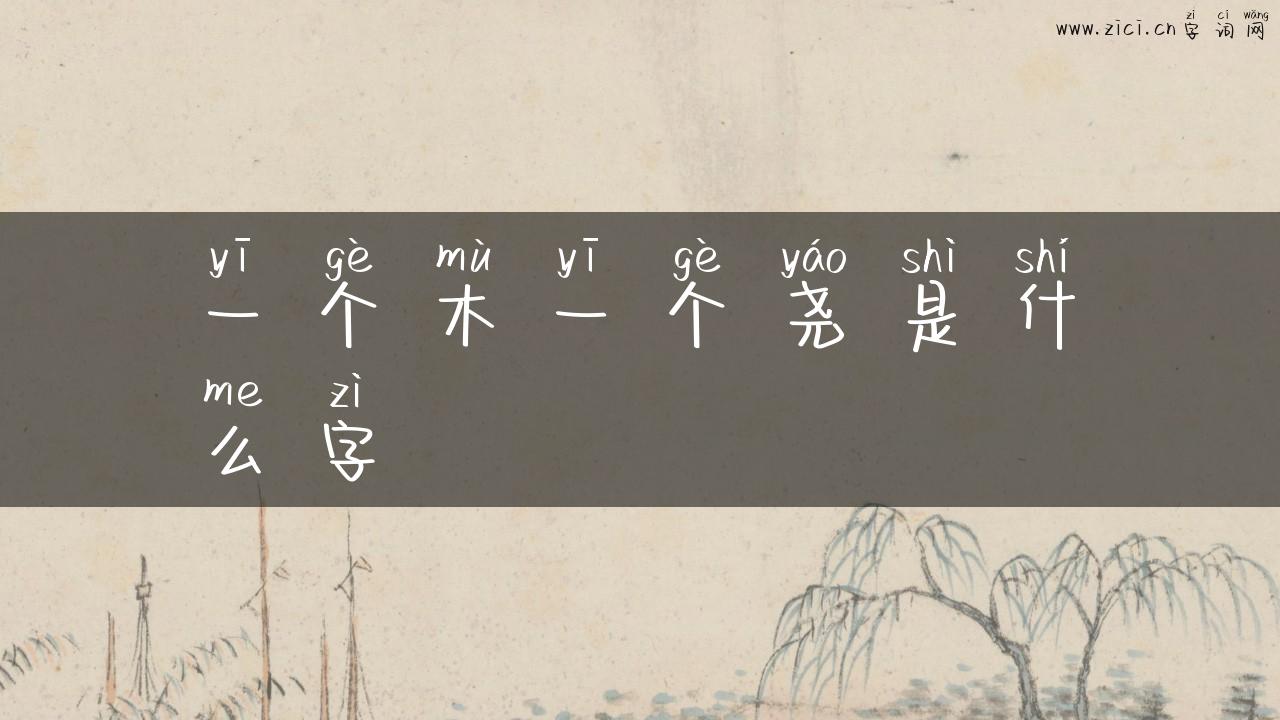 www.zici.cn 字词网
zì cí wǎng
yī gè mù yī gè yáo shì shí
一个木一个尧是什
me zì
么字